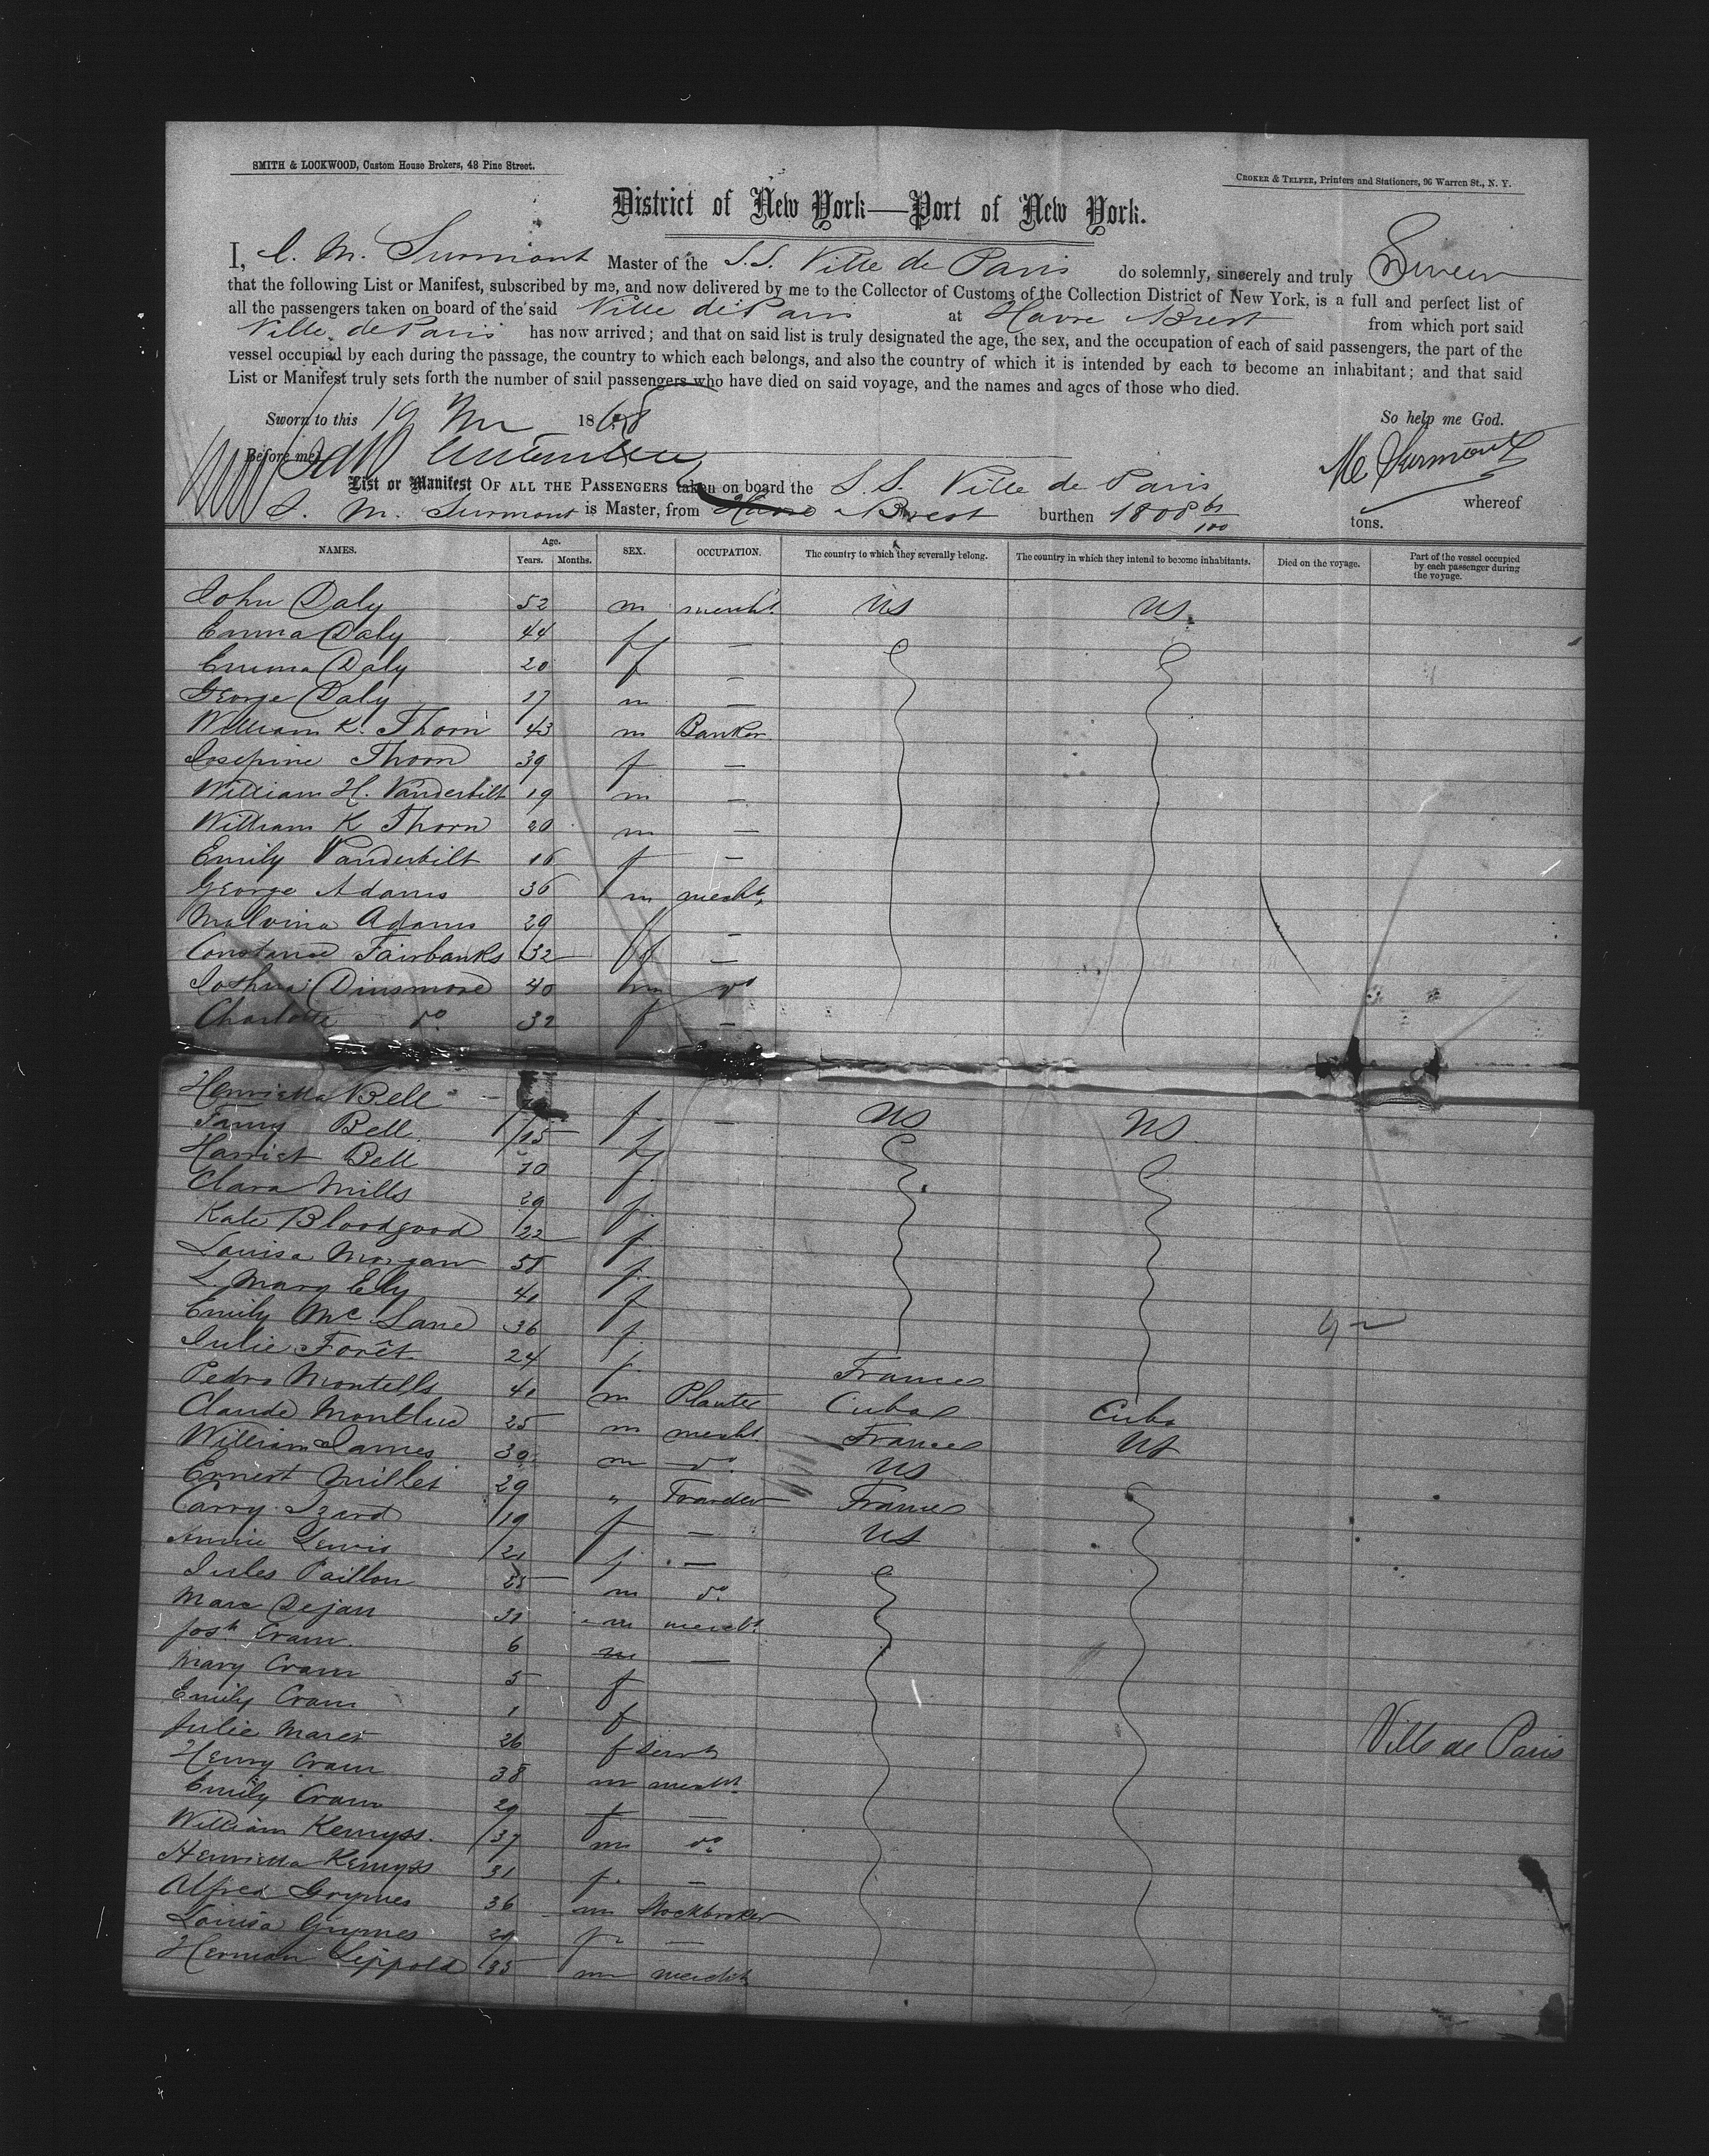 SMITH & LOCKWOOD, Custom House Brokers, 48 Pine Street.
CROKER & TELFER, Printers and Stationers, 96 Warren St., N. Y.
District of New York—Port of New York.
I, M. Surmont Master of the S.S. Ville de Paris do solemnly, sincerely and truly Swear
that the following List or Manifest, subscribed by me, and now delivered by me to the Collector of Customs of the Collection District of New York, is a full and perfect list of
all the passengers taken on board of the said Ville de Paris at Havre Brest from which port said
Ville de Paris has now arrived; and that on said list is truly designated the age, the sex, and the occupation of each of said passengers, the part of the
vessel occupied by each during the passage, the country to which each belongs, and also the country of which it is intended by each to become an inhabitant; and that said
List or Manifest truly sets forth the number of said passengers who have died on said voyage, and the names and ages of those who died.
Sworn to this 19 1868 So help me God.
Before me, Surmont
List or Manifest OF ALL THE PASSENGERS taken on board the S.S. Ville de Paris whereof
M. Surmont is Master, from Havre Brest burthen 1808 tons.
NAMES. Age. Years. Months. SEX. OCCUPATION. The country to which they severally belong. The country in which they intend to become inhabitants. Died on the voyage. Part of the vessel occupied by each passenger during the voyage.
John Daly 52 m mercht. US US.
Emma Daly 44 f —
Emma Daly 20 f —
George Daly 17 m —
William K. Thorn 43 m Banker
Josephine Thorn 39 f —
William H. Vanderbilt 19 m —
William K Thorn 20 m —
Emily Vanderbilt 16 f —
George Adams 36 m mercht.
Malvina Adams 29 f —
Constance Fairbanks 32 f —
Joshua Dinsmore 40 m do
Charlotte do 32 f —
Henrietta Bell f — US US
Fanny Bell 15 f
Harriet Bell 10 f
Clara Mills 29 f
Kate Bloodgood 22 f
Louisa Morgan f
L. Mary Ely 40 f
Emily McLane 36 f
Julie Forêt 24 f France
Pedro Montells 40 m Planter Cuba Cuba
Claude 25 m mercht. France US
William James 30 m do US
Ernest Millet 29 " France
Carry Izard 19 f — US
Annie Lewis 21 f —
Jules Paillon m do
Marc Dejan 31 m mercht.
Josh Cram 6 m —
Mary Cram 5 f
Emily Cram 1 f
Julie Maret 26 f servt Ville de Paris
Henry Cram 38 m mercht.
Emily Cram 29 f —
William Kemyss. 37 m do
Henrietta Kemyss 31 f —
Alfred Grymes 36 m Stockbroker
Louisa Grymes 29 f —
Herman Leppold 35 m mercht.